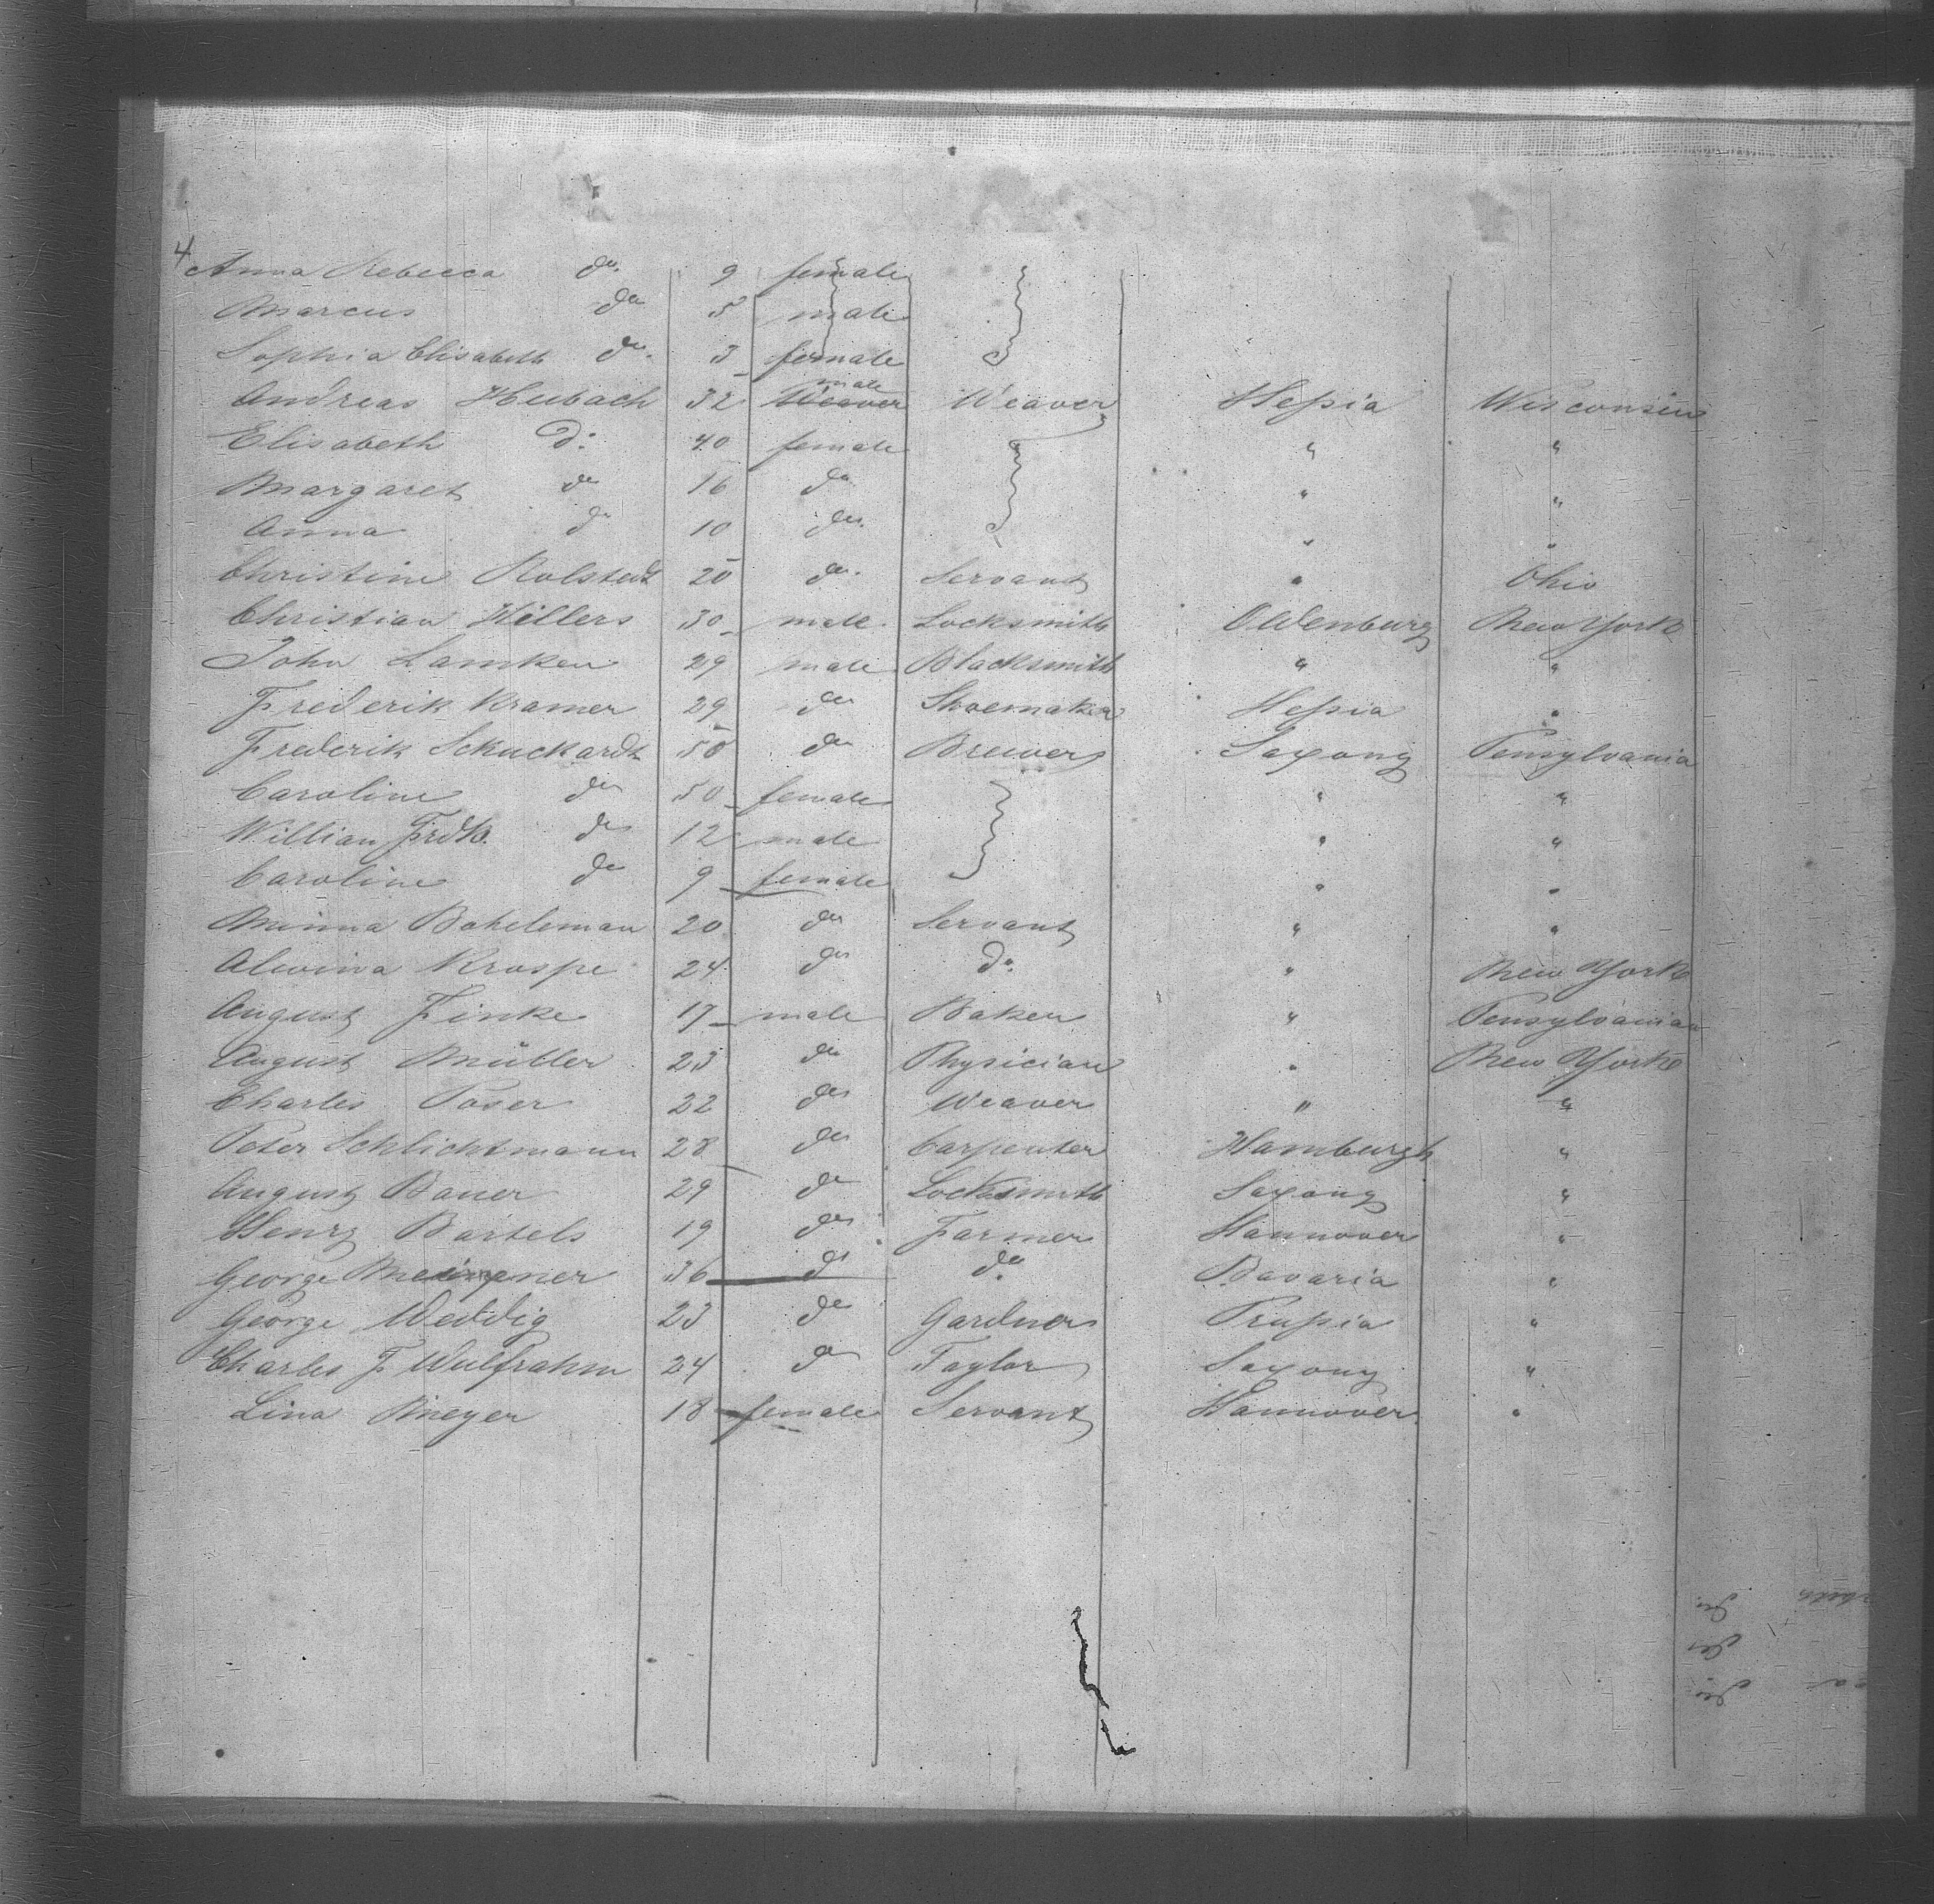 4 Anna Rebecca do. 9 female
Marcus do 5 male
Sophia Elisabeth do. 3 female
Andreas Heubach 32 Weaver male Weaver Heßia Wisconsin
Elisabeth do: 40 female " "
Margaret do 16 do " "
Anna do 10 do. " "
Christine Rolstedt 20 do. Servant " Ohio
Christian Hillers 30 male Locksmith Oldenburg New York
John Lamken 29 male Blacksmith " "
Frederik Kramer 29 do Shoemaker Heßia "
Frederik Schuckardt 50 do Brewer Saxony Pensylvania
Caroline do 50 female " "
William Frdk. do 12 male " "
Caroline do 9 female " "
Minna Boheleman 20 do Servant " "
Alwina Kruspe 24 do do. " New York
August Finke 17 male Baker " Pensylvania
August Müller 23 do Physician " New York
Charles Poser 22 do Weaver " "
Peter Schlichtmann 28 do Carpenter Hamburgh "
August Bauer 29 do Locksmith Saxony "
Henry Bartels 19 do Farmer Hannover "
George 36 do do. Bavaria "
George Weddig 23 do Gardner Prußia "
Charles F Wulfrahm 24 do Taylor Saxony "
Lina Meyer 18 female Servant Hannover "
do.
do
do.